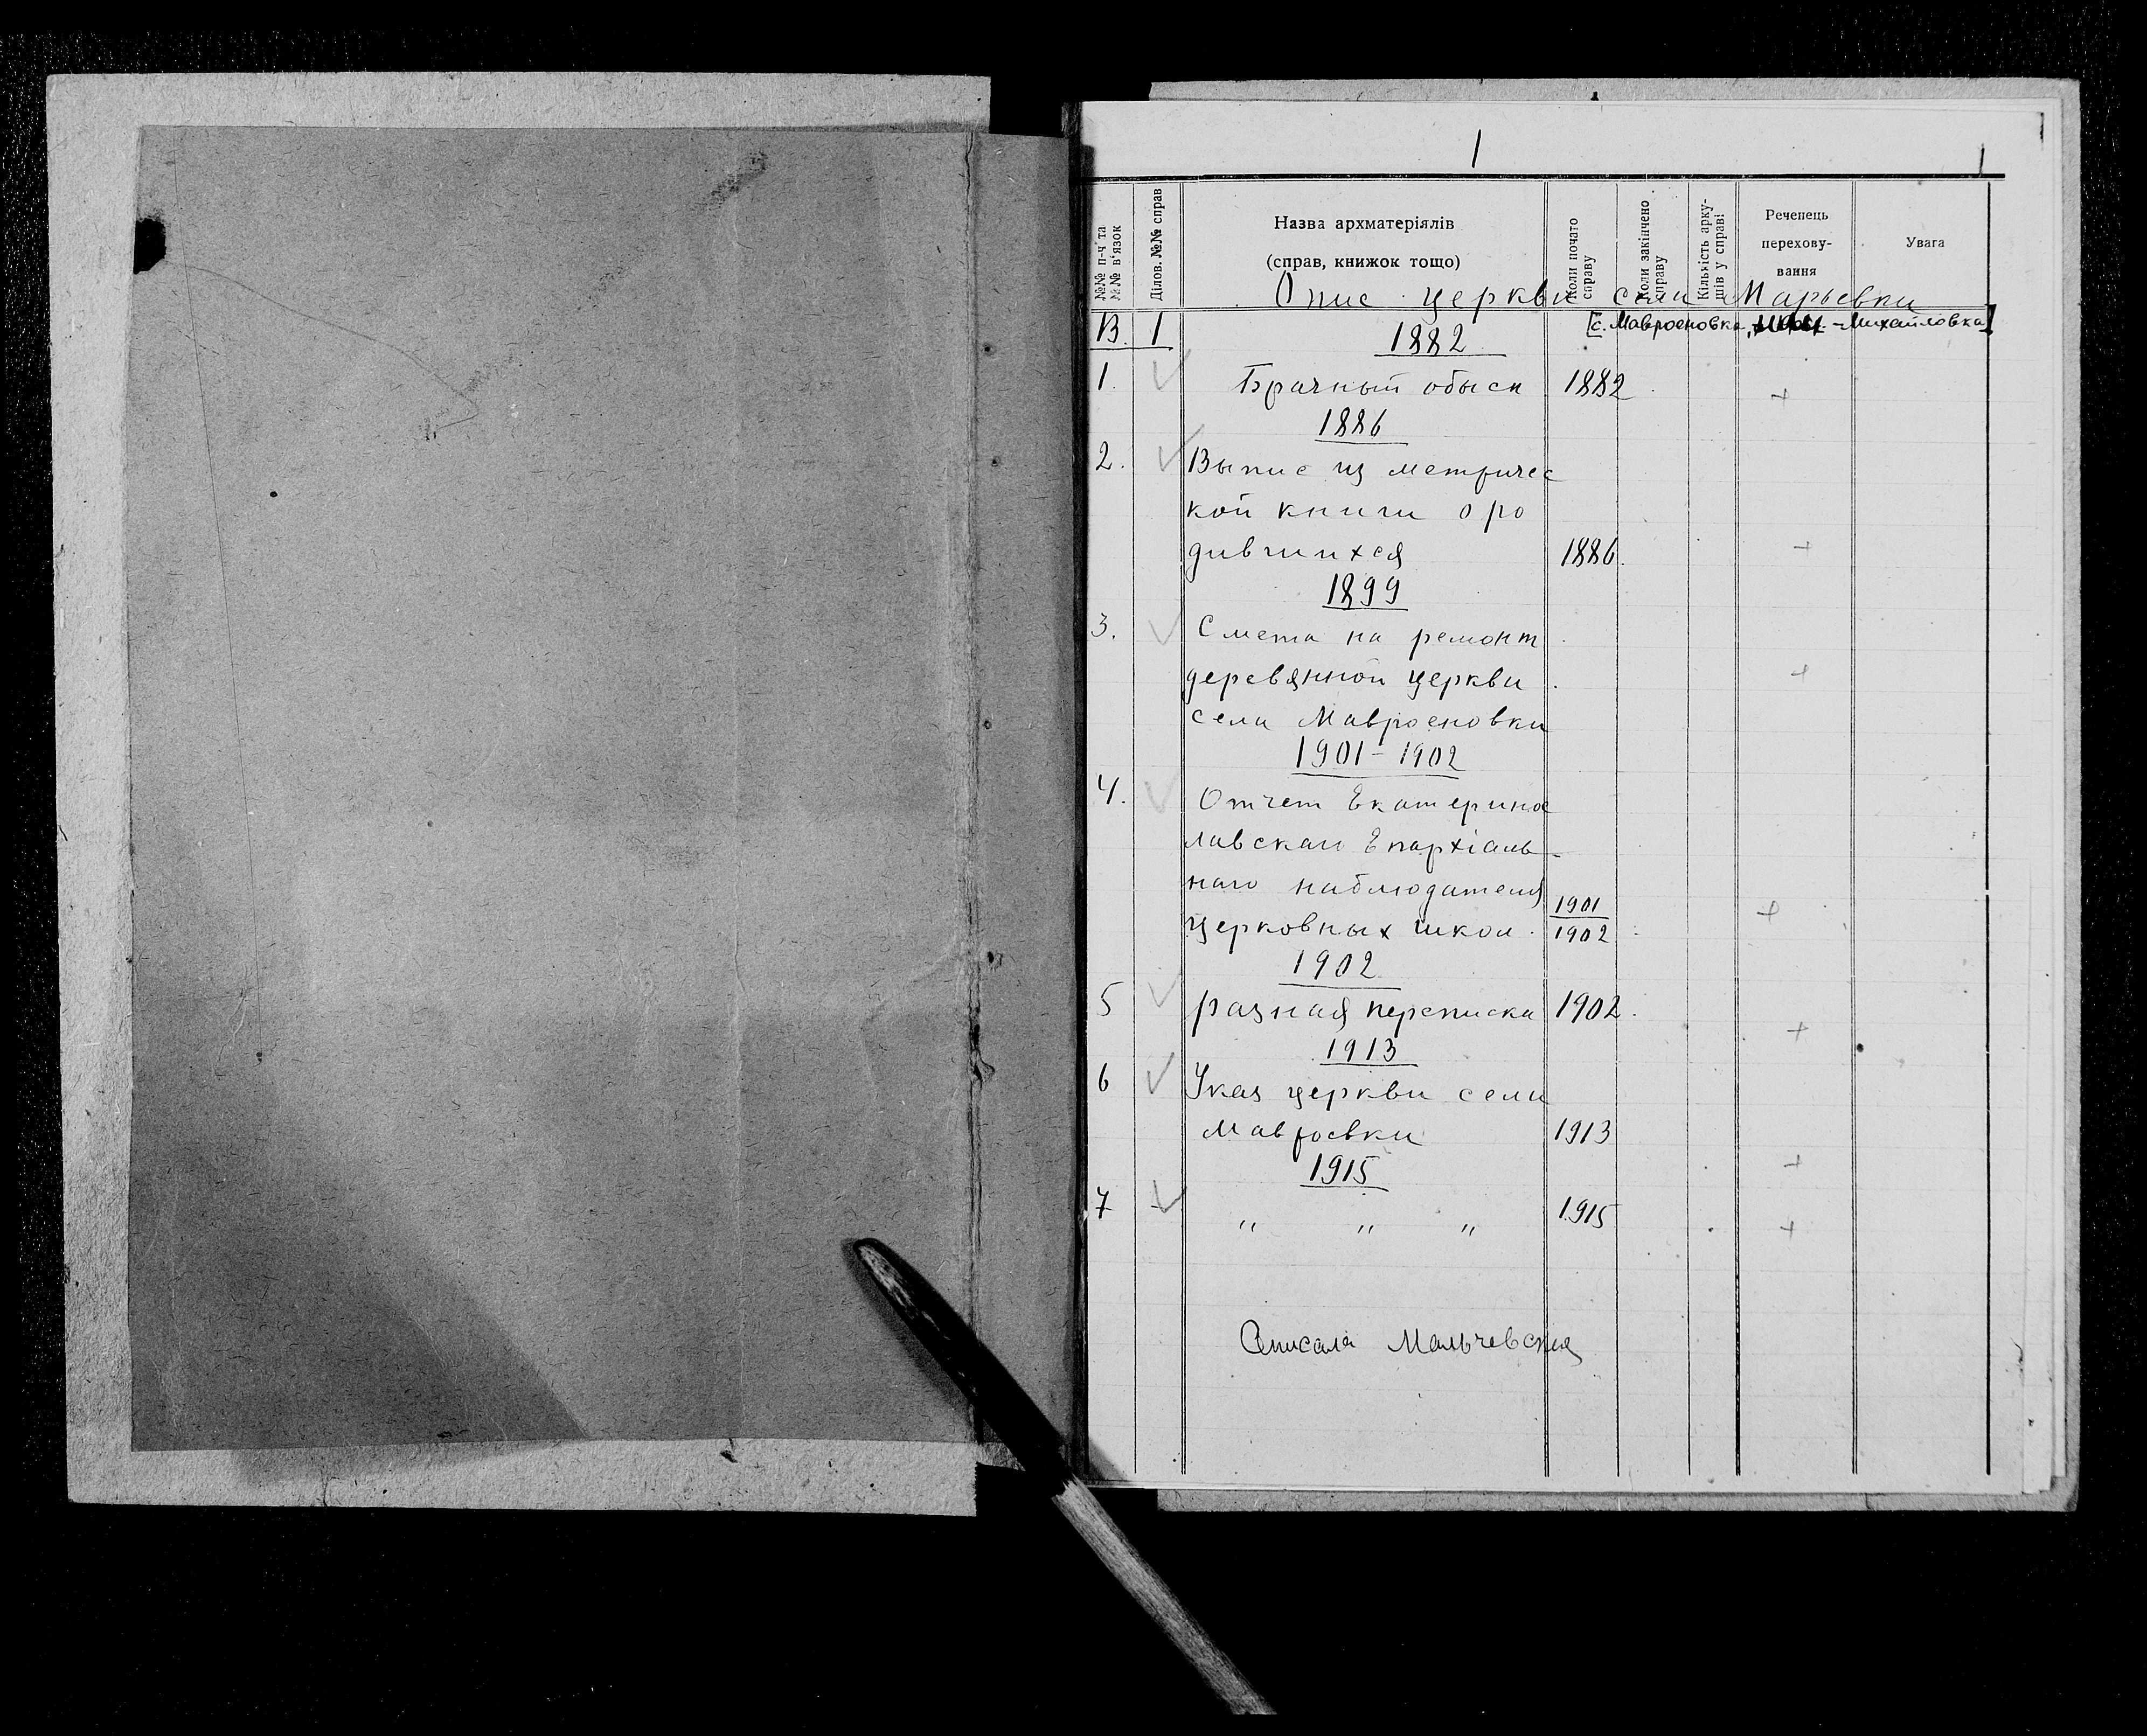 1
1
№№ п-ч та №№ в'язок
Ділов. №№ справ
Назва архматеріялів
(справ, книжок тощо)
Коли почато справу
Коли закінчено справу
Кількість арку-
шів у справі
Реченець
перехову-
вання
Увага
Опис церкви села Марьевки
[с. Мавроеновка, Михайловка]
В. 1
1882
1. Брачный обыск 1882
+
1886
2. Выпис из метричес
кой книги о ро
дившихся 1886
+
1899
3. Смета на ремонт
деревянной церкви
+
села Мавроеновки
1901-1902
4. Отчет Екатеринос
лавскаго Епархіаль-
наго наблюдателя
церковных школ. 1901
1902
+
1902
5 разная переписка 1902
+
1913
6 Указ церкви села
Мавроевки 1913
+
1915
7 " " " 1915
+
Описала Мальчевская